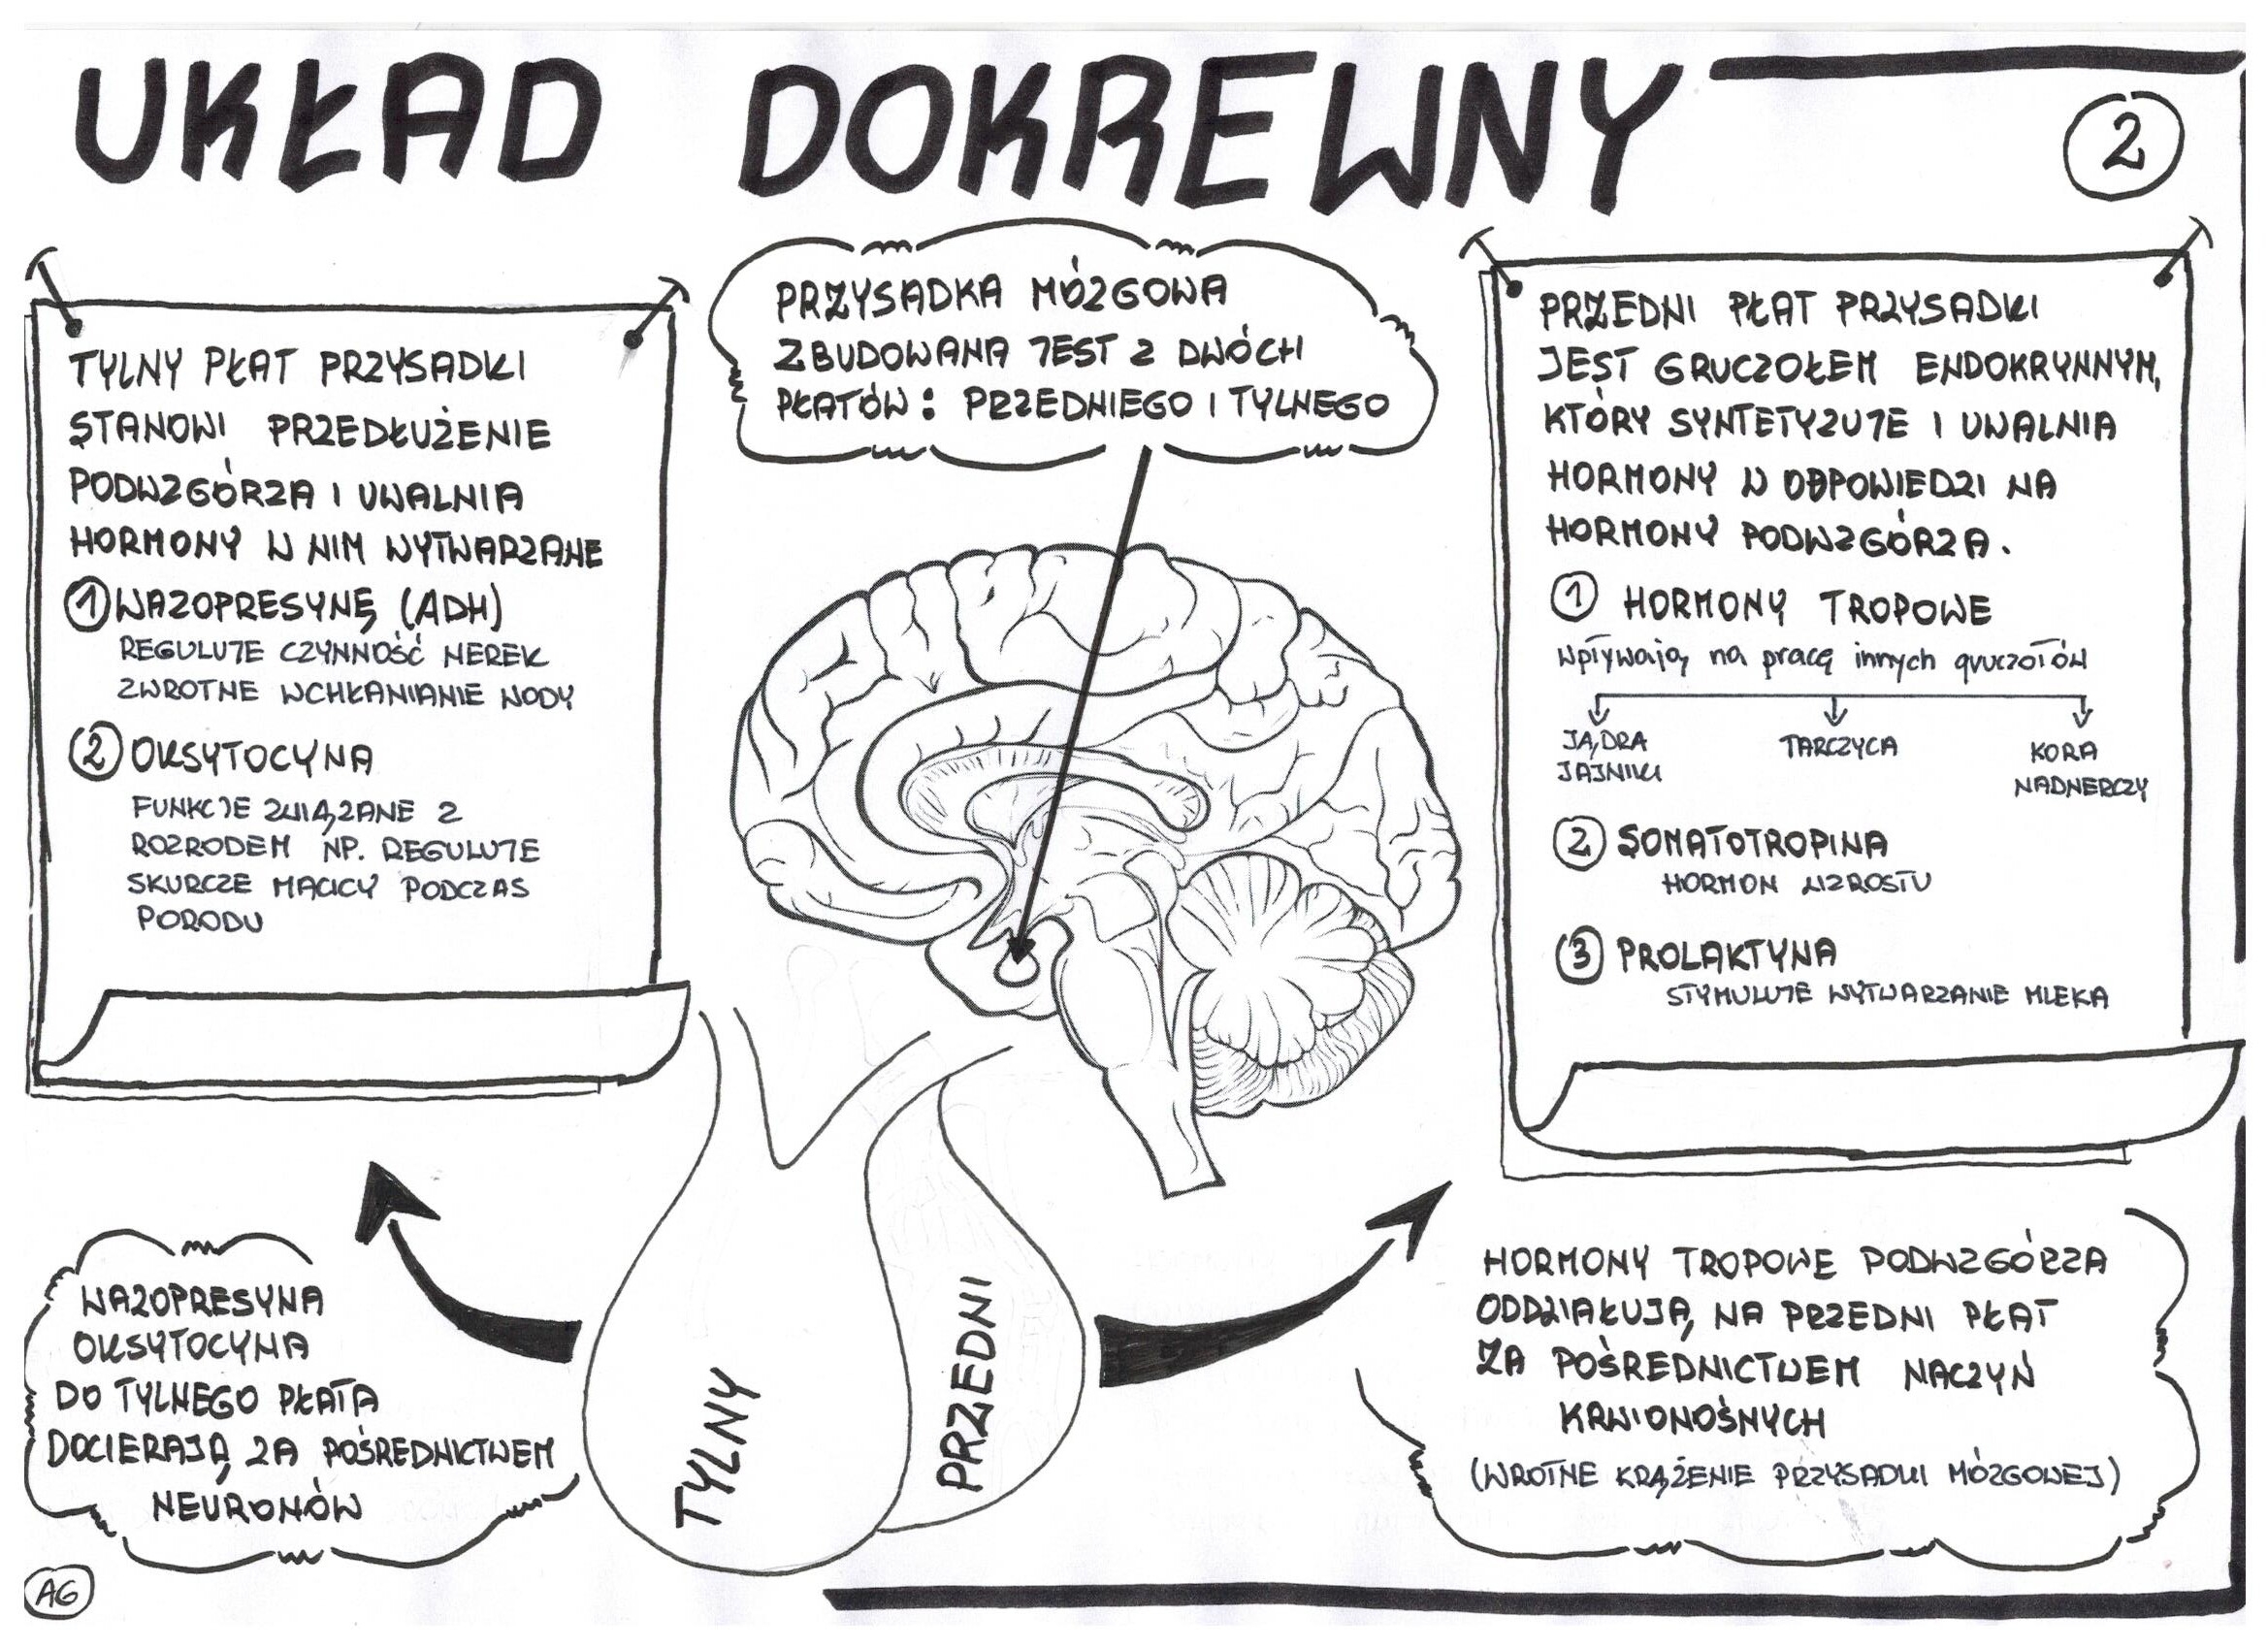 UKŁAD DOKREWNY
2
PRZYSADKA MÓZGOWA
ZBUDOWANA JEST Z DWÓCH
PŁATÓW: PRZEDNIEGO I TYLNEGO
TYLNY PŁAT PRZYSADKI
STANOWI PRZEDŁUŻENIE
PODWZGÓRZA I UWALNIA
HORMONY W NIM WYTWARZANE
1 WAZOPRESYNĘ (ADH)
REGULUJE CZYNNOŚĆ NEREK
ZWROTNE WCHŁANIANIE WODY
2 OKSYTOCYNA
FUNKCJE ZWIĄZANE Z
ROZRODEM NP. REGULUJE
SKURCZE MACICY PODCZAS
PORODU
PRZEDNI PŁAT PRZYSADKI
JEST GRUCZOŁEM ENDOKRYNNYM,
KTÓRY SYNTETYZUJE I UWALNIA
HORMONY W ODPOWIEDZI NA
HORMONY PODWZGÓRZA.
1 HORMONY TROPOWE
wpływają na pracę innych gruczołów
JĄDRA
JAJNIKI
TARCZYCA
KORA
NADNERCZY
2 SOMATOTROPINA
HORMON WZROSTU
3 PROLAKTYNA
STYMULUJE WYTWARZANIE MLEKA
WAZOPRESYNA
OKSYTOCYNA
DO TYLNEGO PŁATA
DOCIERAJĄ ZA POŚREDNICTWEM
NEURONÓW
TYLNY
PRZEDNI
HORMONY TROPOWE PODWZGÓRZA
ODDZIAŁUJĄ NA PRZEDNI PŁAT
ZA POŚREDNICTWEM NACZYŃ
KRWIONOŚNYCH
(WROTNE KRĄŻENIE PRZYSADKI MÓZGOWEJ)
AG